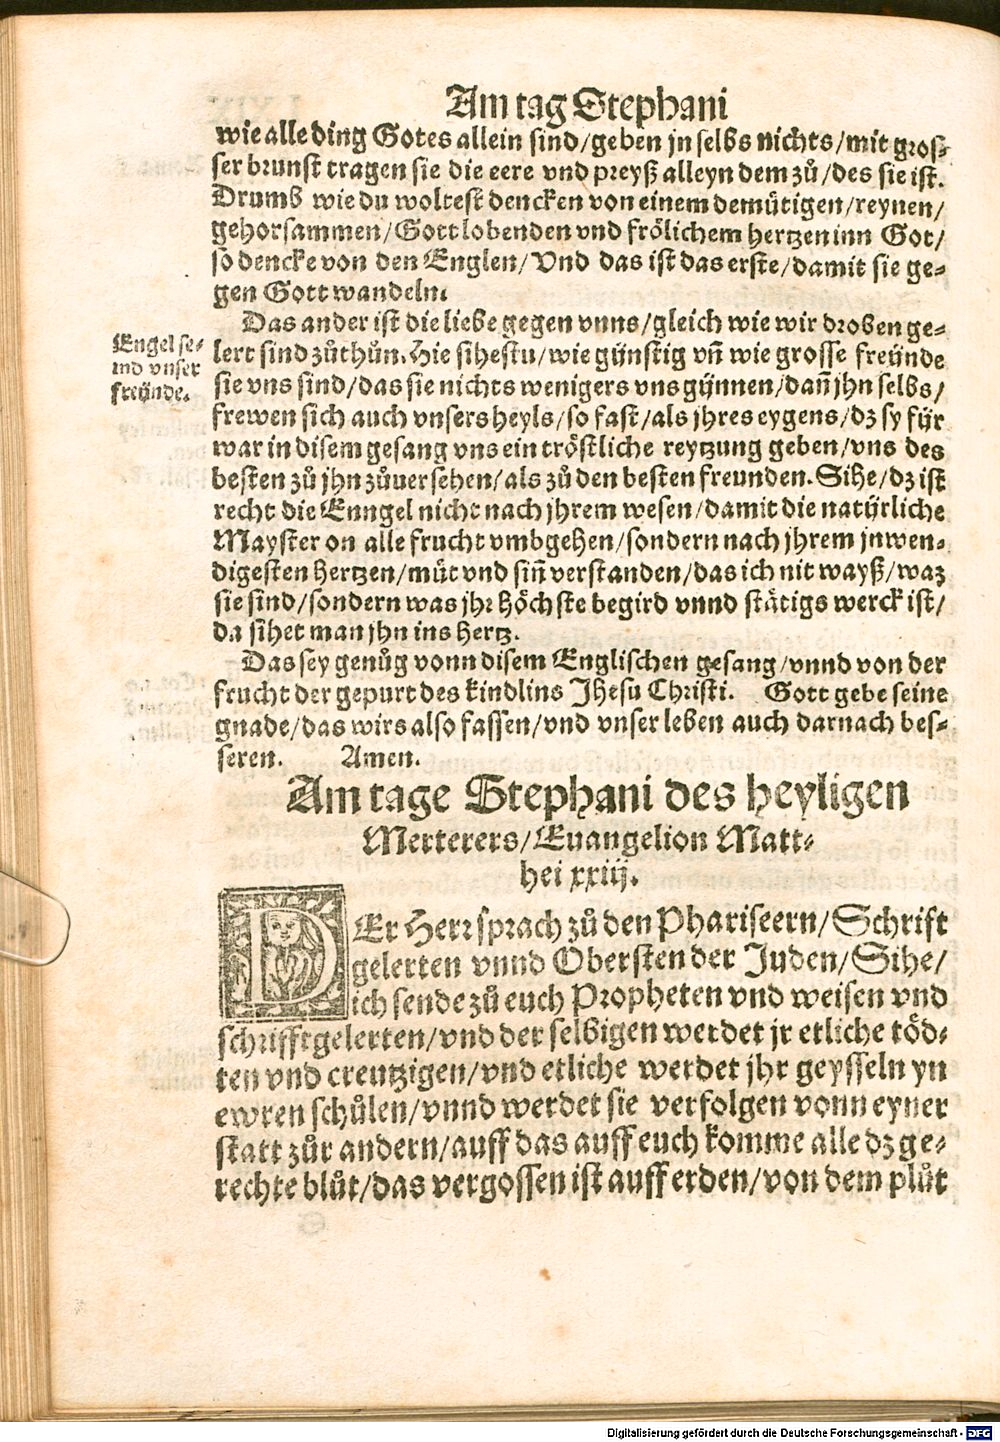 Am tag Stephani
wie alle ding Gotes allein sind/geben jn selbs nichts/mit gros-
ser brunst tragen sie die eere vnd preyß alleyn dem zů/des sie ist.
Drumb wie du woltest dencken von einem demütigen/reynen/
gehorsammen/Gott lobenden vnd frölichem hertzen inn Got/
so dencke von den Englen/Vnd das ist das erste/damit sie ge-
gen Gott wandeln.
Das ander ist die liebe gegen vnns/gleich wie wir droben ge-
Engel se-
ind vnser
freünde.
lert sind zůthůn. Hie sihestu/wie günstig vñ wie grosse freünde
sie vns sind/das sie nichts wenigers vns gỹnnen/dañ jhn selbs/
frewen sich auch vnsers heyls/so fast/als jhres eygens/dz sy für
war in disem gesang vns ein tröstliche reytzung geben/vns des
besten zů jhn zůuersehen/als zů den besten freunden. Sihe/dz ist
recht die Enngel nicht nach jhrem wesen/damit die natürliche
Mayster on alle frucht vmbgehen/sondern nach jhrem jnwen-
digesten hertzen/můt vnd siñ verstanden/das ich nit wayß/waz
sie sind/sondern was jhr höchste begird vnnd stätigs werck ist/
da sihet man jhn ins hertz.
Das sey genůg vonn disem Englischen gesang/vnnd von der
frucht der gepurt des kindlins Jhesu Christi. Gott gebe seine
gnade/das wirs also fassen/vnd vnser leben auch darnach bes-
seren. Amen.
Am tage Stephani des heyligen
Merterers/Euangelion Matt-
hei xxiij.
DEr Herr sprach zů den Phariseern/Schrift
gelerten vnnd Obersten der Juden/Sihe/
ich sende zů euch Propheten vnd weisen vnd
schrifftgelerten/vnd der selbigen werdet jr etliche töd-
ten vnd creutzigen/vnd etliche werdet jhr geysseln yn
ewren schůlen/vnnd werdet sie verfolgen vonn eyner
statt zůr andern/auff das auff euch komme alle dz ge-
rechte blůt/das vergossen ist auff erden/von dem plůt
Digitalisierung gefördert durch die Deutsche Forschungsgemeinschaft - DFG